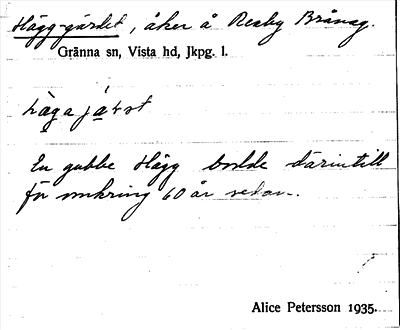 Hägg-gärdet, åker å Reaby Brånag.
Gränna sn, Vista hd, Jkpg. l.
hägajärst
En gubbe Hägg bodde därintill
för omkring 60 år sedan.
Alice Petersson 1935.